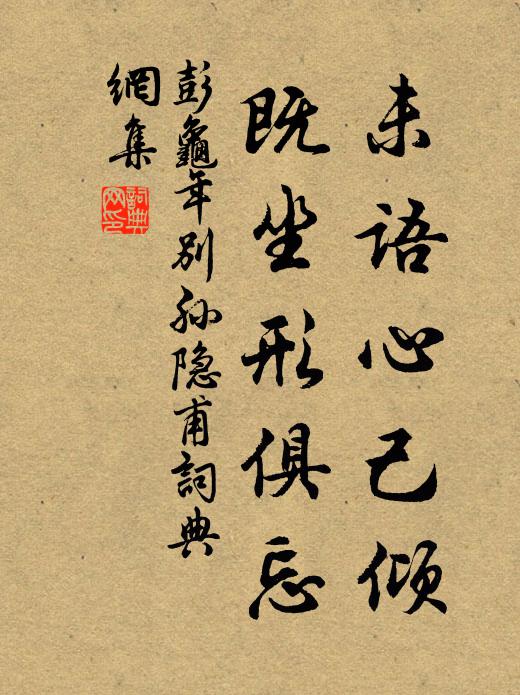 未语心已倾
既坐形俱忘
彭龜年别孙隐甫詞典
網集
詞典网印